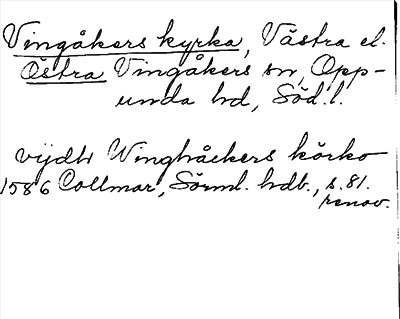 Vingåkers kyrka, Västra el.
Östra Vingåkers sn, Opp-
unda hd, Söd. l.
vijdh Winghåckers körko
1586 Collmar, Sörml. hdb., s. 81.
renov.